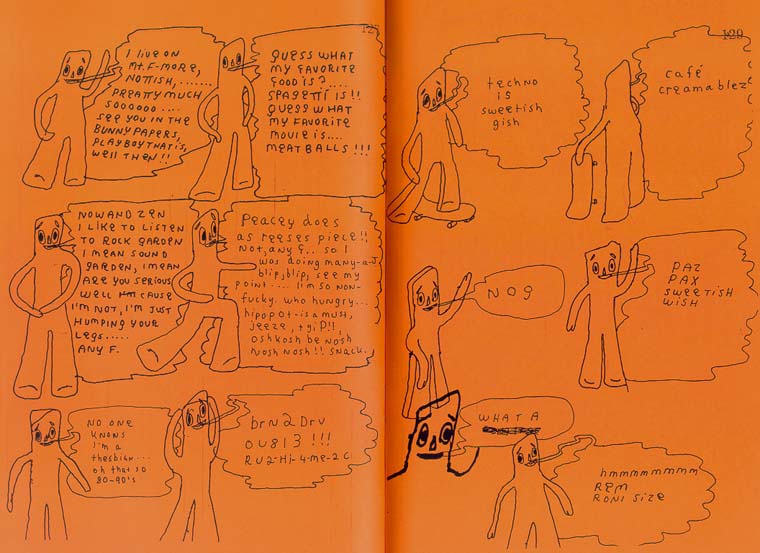 127
I live on
Mt. F-more,
Nottish,.......
Preatty much
Soooooo....
See you in the
Bunny papers,
Playboy that is,
well then!!
Guess what
my favorite
food is?....
Spagetti is!!
Guess what
my favorite
movie is....
Meat Balls!!!
Now and Zen
I like to listen
to Rock Garden
I mean Sound
Garden, I mean
are you serious
well cause
I'm not, I'm just
humping your
legs.....
any F.
Peacey does
as reeses piece!!
Not, any F... so I
was doing many-a-
blip, blip, see my
point.... I'm so non-
fucky. who hungry...
hippopot-is a must,
jeeze, tgiP!!,
oshkosh be nosh
nosh nosh!! snack.
No one
knows
I'm a
thesbian...
oh that so
80-90's
brn2Dru
OU813!!!
RU2-Hi-4-me-2C
129
techno
is
sweetish
gish
café
creamablez
Nog
Paz
Pax
sweetish
wish
What a
hmmmmmmmm
REM
Roni Size